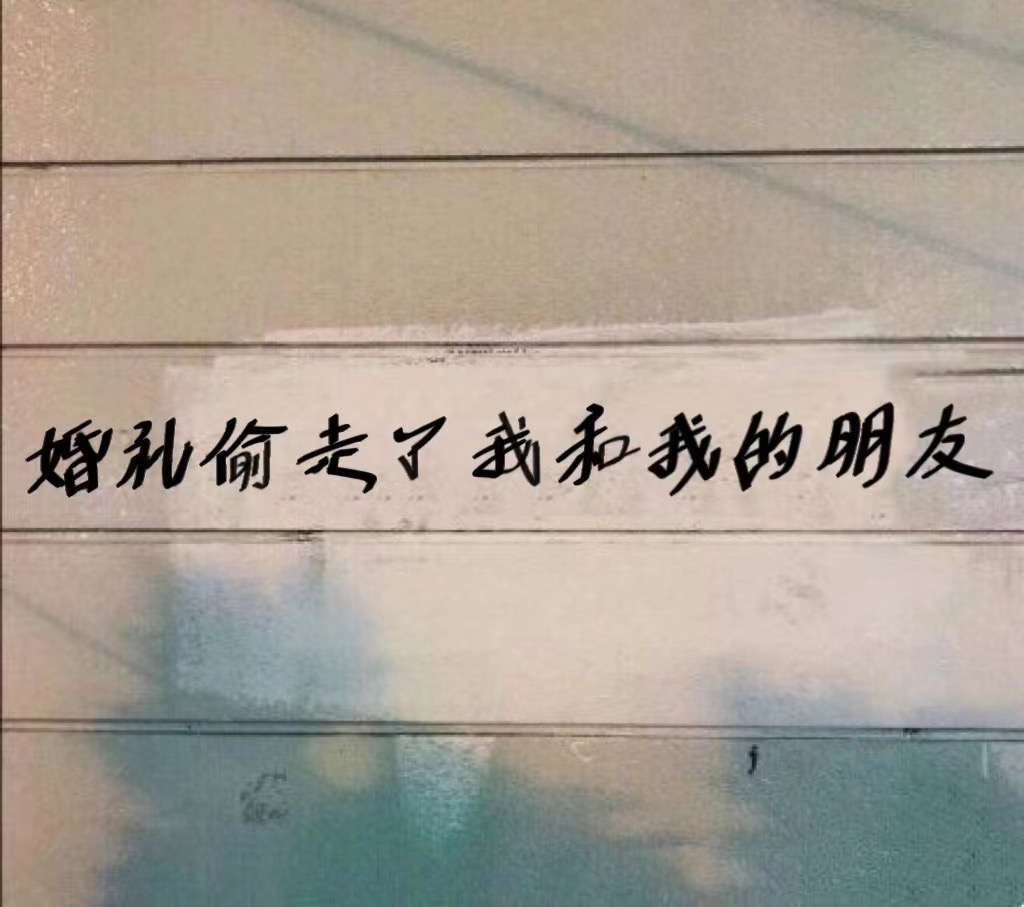 婚礼偷走了我和我的朋友